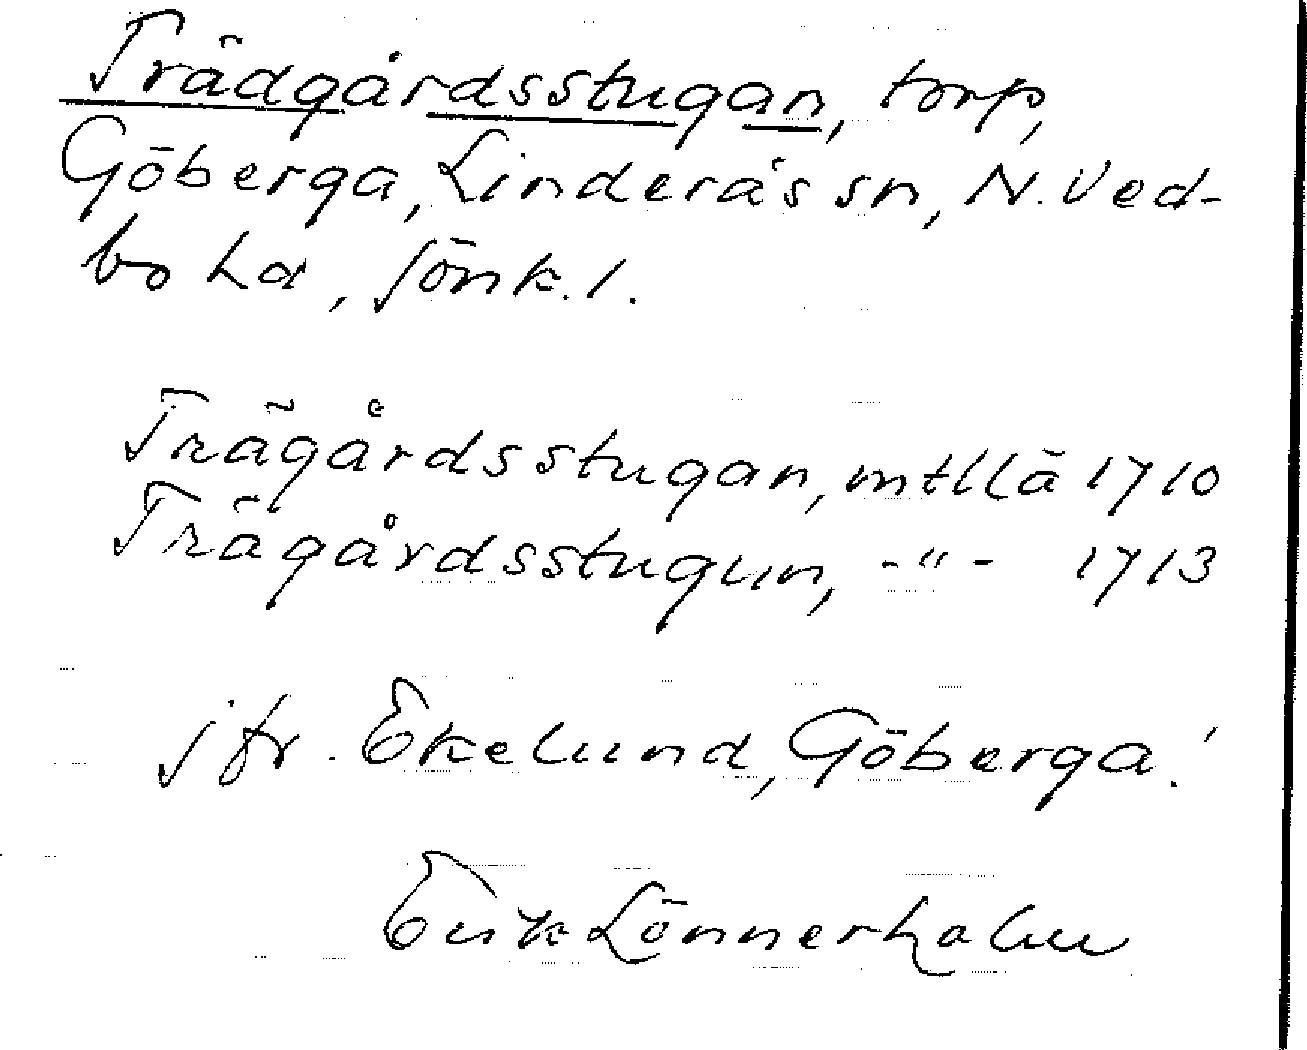 Trädgårdsstugan, torp,
Göberga, Linderås sn, N. Ved-
bo hd, Jönk. l.
Trägårdsstugan, mtllä 1710
Trägårdsstugun, -"- 1713
jfr. Ekelund, Göberga!
Erik Lönnerholm